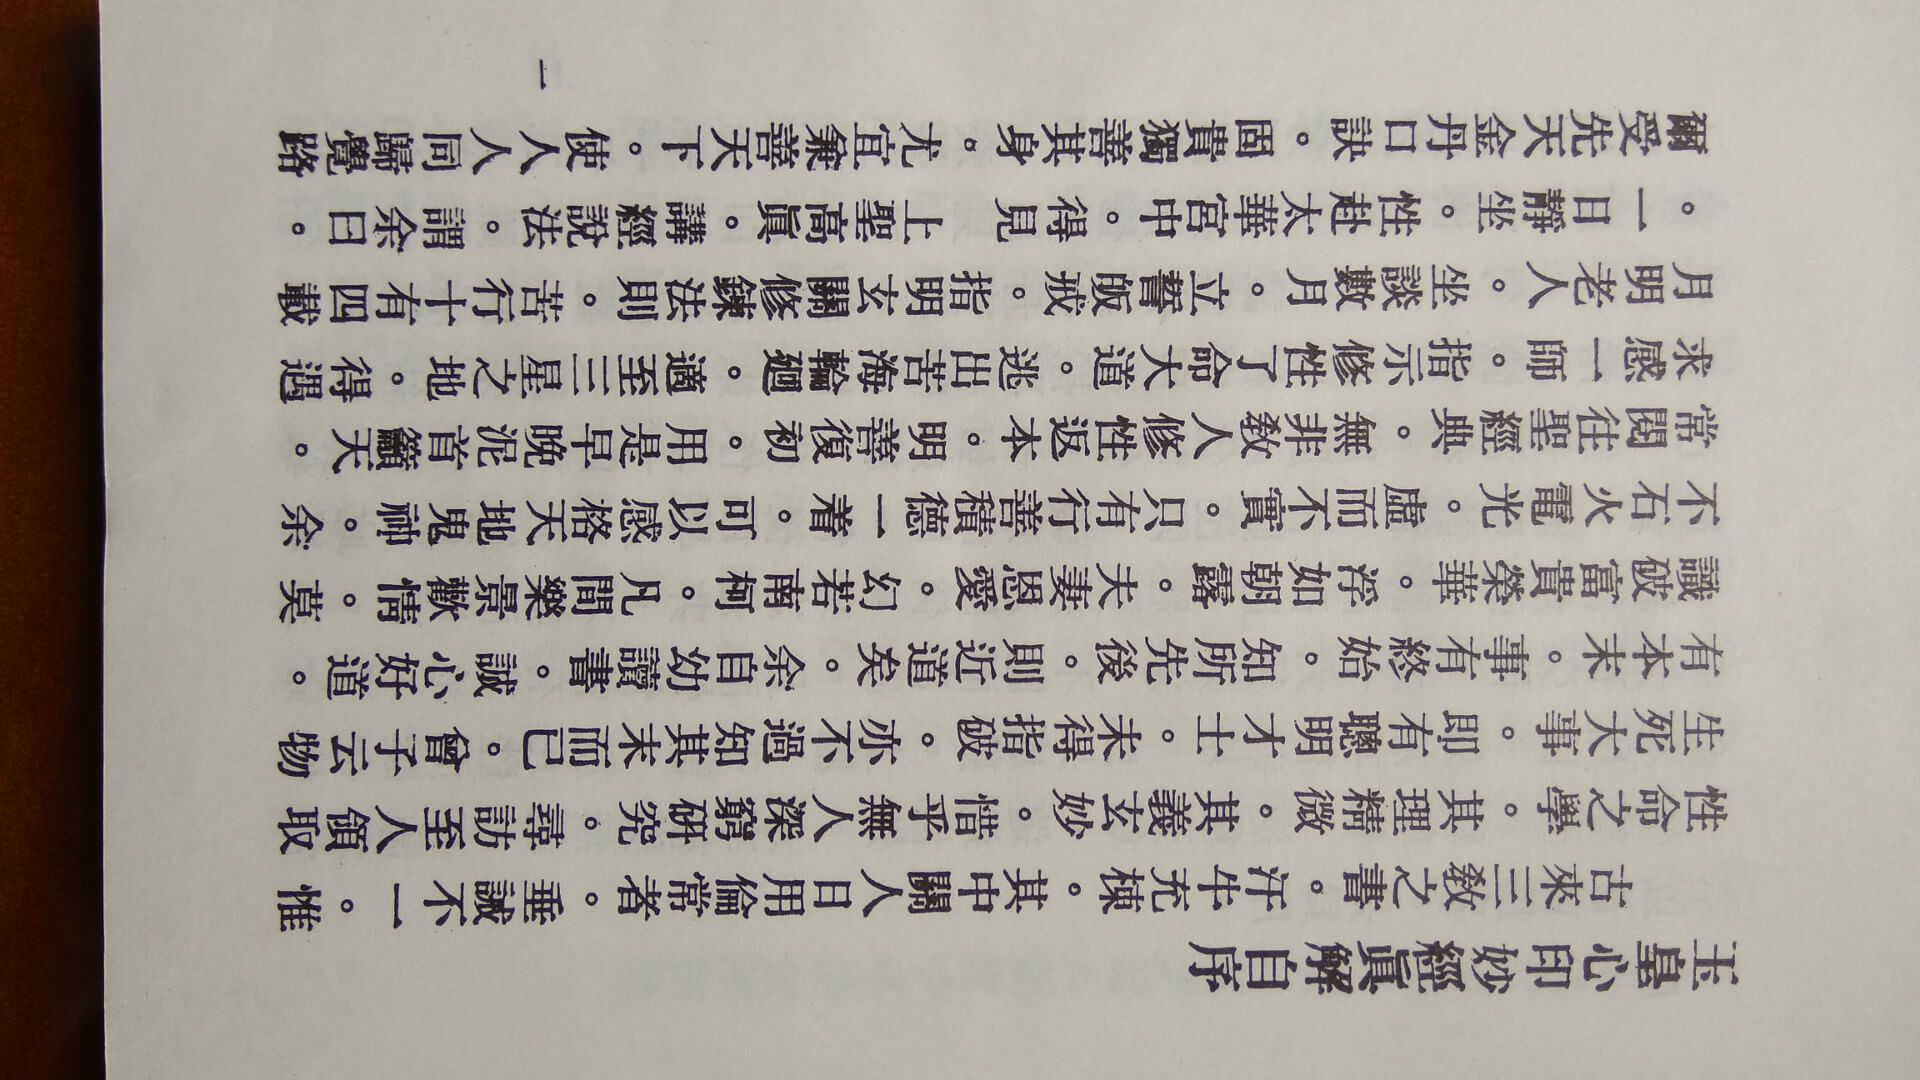 玉皇心印妙經眞解自序
古來三教之書。汗牛充棟。其中關人日用倫常者。垂誡不一。惟
性命之學。其理精微。其義玄妙。惜乎無人深窮硏究。尋訪至人領取
生死大事。即有聰明才士。未得指破。亦不過知其末而已。曾子云物
有本末。事有終始。知所先後。則近道矣。余自幼讀書。誠心好道。
識破富貴榮華。浮如朝露。夫妻恩愛。幻若南柯。凡間樂景歡情。莫
不石火電光。虛而不實。只有行善積德一着。可以感格天地鬼神。余
常閱往聖經典。無非教人修性返本。明善復初。用是早晚泥首籲天。
求感一師。指示修性了命大道。逃出苦海輪廻。適至三星之地。得遇
月明老人。坐談數月。立誓皈戒。指明玄關修鍊法則。苦行十有四載
。一日靜坐。性赴太華宮中。得見　上聖高眞。講經說法。謂余曰。
爾受先天金丹口訣。固貴獨善其身。尤宜兼善天下。使人人同歸覺路
一